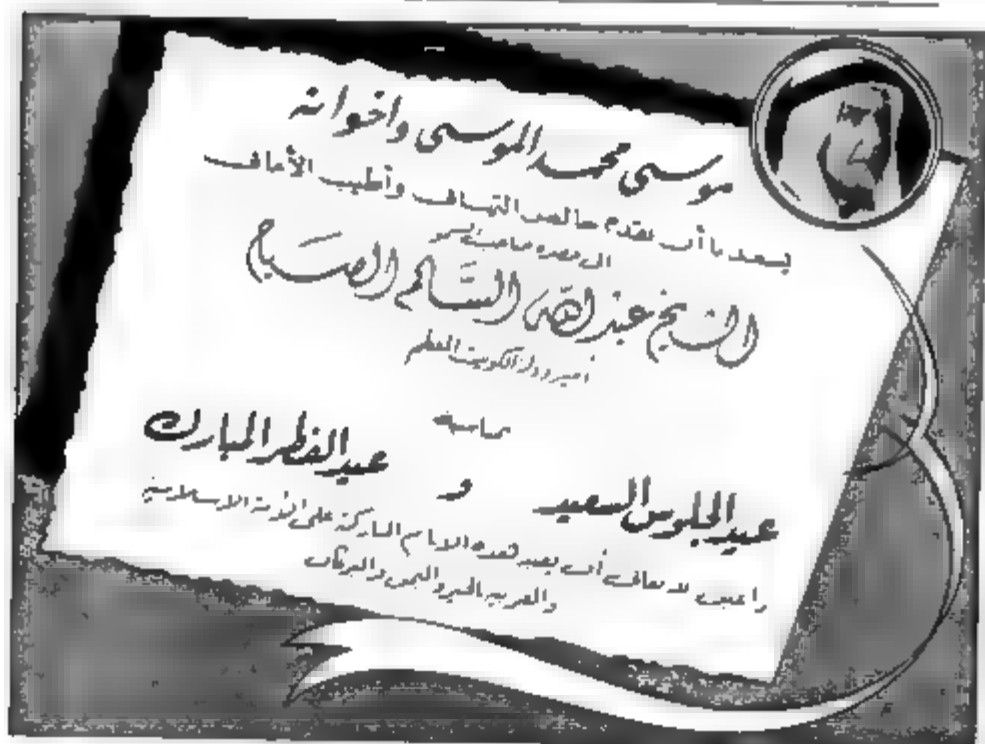 موسى محمد الموسى واخوانه
يسعدنا أن نقدم خالص التهاني وأطيب الأماني
الى حضرة صاحب السمو
الشيخ عبد الله السالم الصباح
أمير دولة الكويت المعظم
بمناسبة
عيد الجلوس السعيد و عيد الفطر المبارك
راجين الله تعالى أن يعيد هذه الايام المباركة على الأمة الاسلامية
والعربية بالخير واليمن والبركات